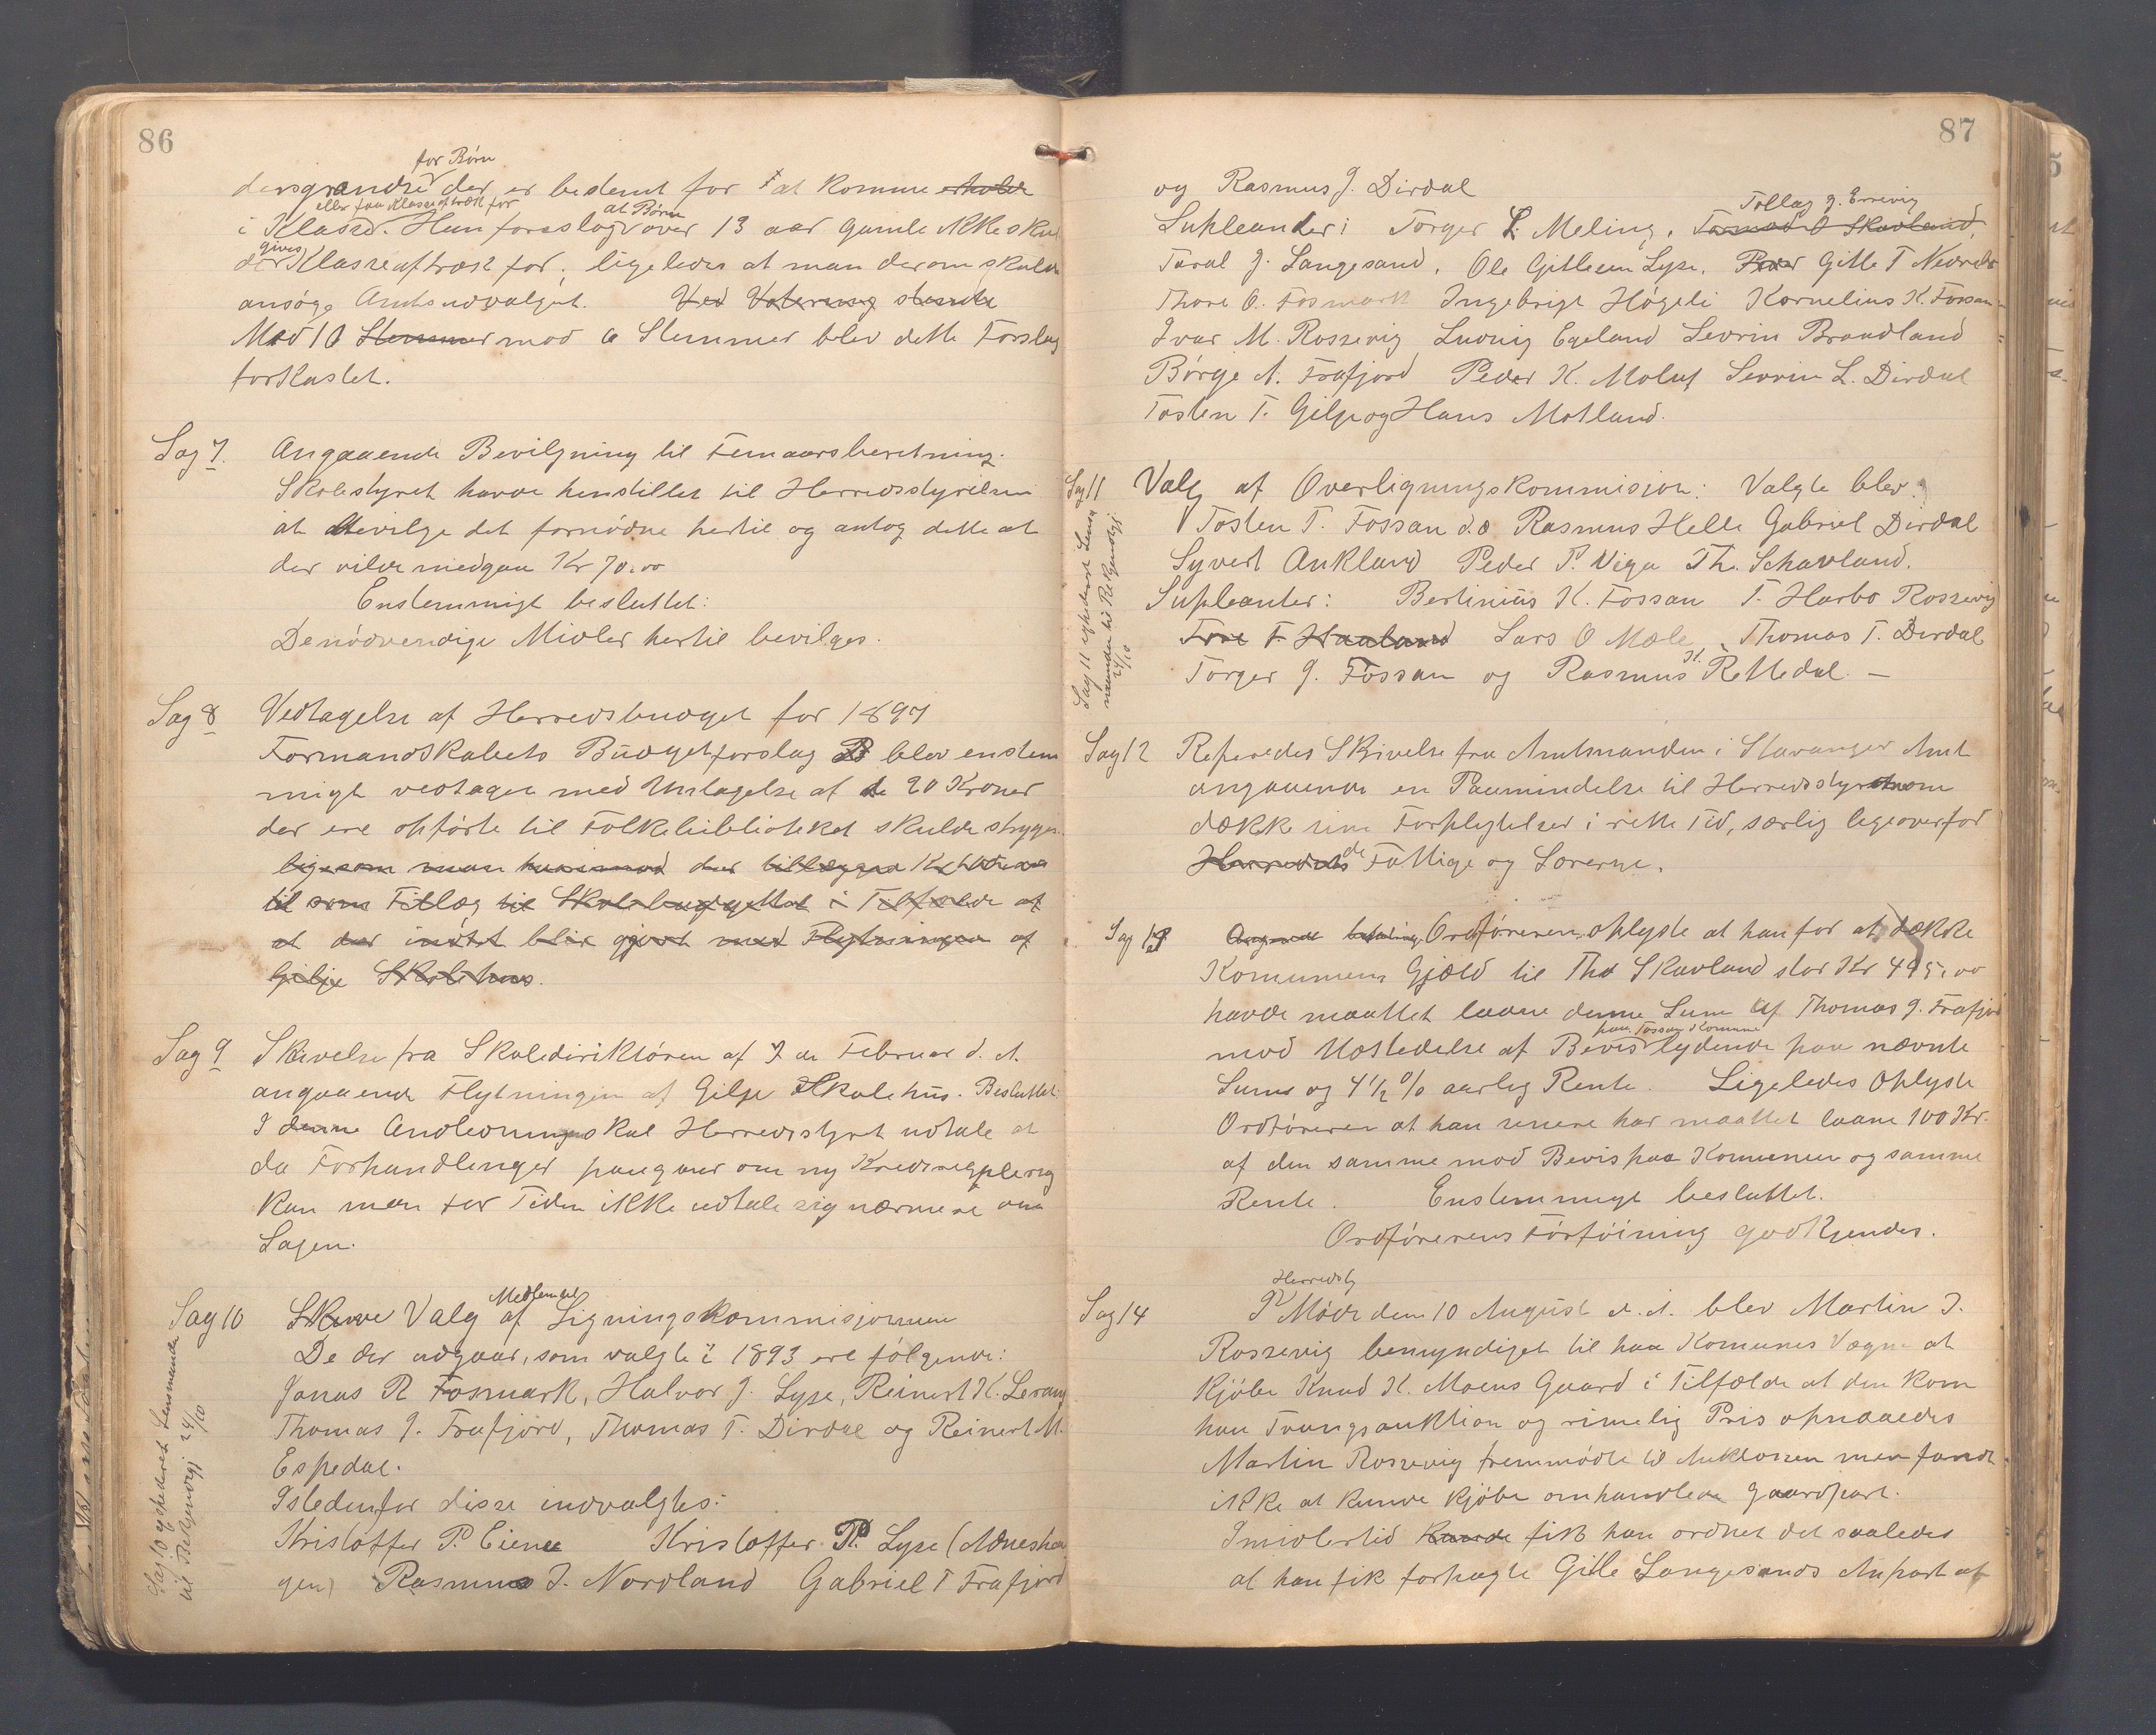 86
for Børn
dersgrandse der er bestemt for at komme erholde
eller faa Klasseaftræk for
at Børn
i Klasse. Han foreslog over 13 aar gamle ikke skul
gives
der Klasseaftræk for, ligeledes at man derom skulde
ansøge Amtsudvalget. Ved Votering stemte
Med 10 Stemmer mod 6 Stemmer blev dette Forslag
forkastet.
Sag 7. Angaaende Bevilgning til Femaarsberetning.
Skolestyret havde henstillet til Herredsstyrelsen
at bevilge det fornødne hertil og antog dette at
der vilde medgaa Kr 70.00
Enstemmigt besluttet:
De nødvendige Midler hertil bevilges.
Sag 8 Vedtagelse af Herredsbudget for 1897
Formandskabets Budgetforslag blev enstem
migt vedtaget med Undtagelse af de 20 Kroner
der ere opførte til Folkebiblioteket skulde stryges.
ligesom man herimod der tillægges Kr
til som Tillæg til Skolebudgettet i Tilfælde af
at der intet blir gjort med Flytningen af
Gilje Skolehus.
Sag 9 Skrivelse fra Skoledirektøren af 7 de Februar d. A.
angaaende Flytningen af Gilje Skolehus. Besluttet:
I denne Anledning skal Herredsstyret udtale at
da Forhandlinger paagaar om ny Kredsregulering
kan man for Tiden ikke udtale sig nærmere om
Sagen.
Medlemmer
Sag 10 Valg af Ligningskommisjonen
De der udgaar, som valgte i 1893 ere følgende:
Jonas R Fosmark, Halvor J. Lyse, Reinert K. Lerang
Thomas J. Frafjord, Thomas T. Dirdal og Reinert M.
Espedal.
Istedenfor disse indvalgtes:
Kristoffer P. Eiene Kristoffer P. Lyse (Adneshau
gen) Rasmus J. Nordland Gabriel T Frafjord
Sag 10 expederet Lensmanden
til Bekjendtgj 24/10
87
og Rasmus J. Dirdal
Tollag G. Ersvig
Supleander: Torger L. Meling, Tormod O Skavland,
Taral J. Langesand, Ole Gitlesen Lyse, Peder Gitle T Nedrebø
Thore O. Fosmark Ingebrigt Høgeli Kornelius K. Fossan
Ivar M. Rossevig Ludvig Egeland Sevrin Brandland
Børge A. Frafjord Peder K. Molaug Sevrin L. Dirdal
Tosten T. Gilje og Hans Motland.
Sag 11 Valg af Overligningskommisjon: Valgte blev:
Tosten T. Fossan d.æ Rasmus Helle Gabriel Dirdal
Syvert Aukland Peder P. Viga Th. Schavland.
Supleanter: Bertinius K. Fossan T. Harbo Rossevig
Tore T. Haaland Lars O Mæle, Thomas T. Dirdal
H.
Torger J. Fossan og Rasmus Rettedal. —
Sag 11 expederet Lens
manden til Bekjendtgj
24/10
Sag 12 Referedes Skrivelse fra Amtmanden i Stavanger Amt
angaaende en Paamindelse til Herredsstyret om
dække sine Forpligtelser i rette Tid, særlig ligeoverfor
de
Herredets Fattige og Lærerne.
Sag 13 Angaaende betaling Ordføreren oplyste at han for at dække
Komunens Gjæld til Th Skavland stor Kr 495,00
havde maattet laane denne Sum af Thomas J. Frafjord
paa Fossan Komune
mod Udstedelse af Bevis lydende paa nævnte
Sum og 4 1/2 % aarlig Rente. Ligeledes oplyste
Ordføreren at han senere har maattet laane 100 Kr.
af den samme mod Bevis paa Komunen og samme
Rente. Enstemmigt besluttet.
Ordførerens Forføining godkjendes.
Herredsst
Sag 14 I Møde den 10 August d. A. blev Martin J.
Rossevig bemyndiget til paa Komunes Vegne at
kjøbe Knud K. Moens Gaard i Tilfælde at den kom
paa Tvangsauktion og rimelig Pris opnaaedes
Martin Rossevig fremmødte til Auktionen men fandt
ikke at kunde kjøbe omhandlede Gaardpart.
Imidlertid kunde fik han ordnet det saaledes
at han fik forpagte Gitle Langesands Anpart af